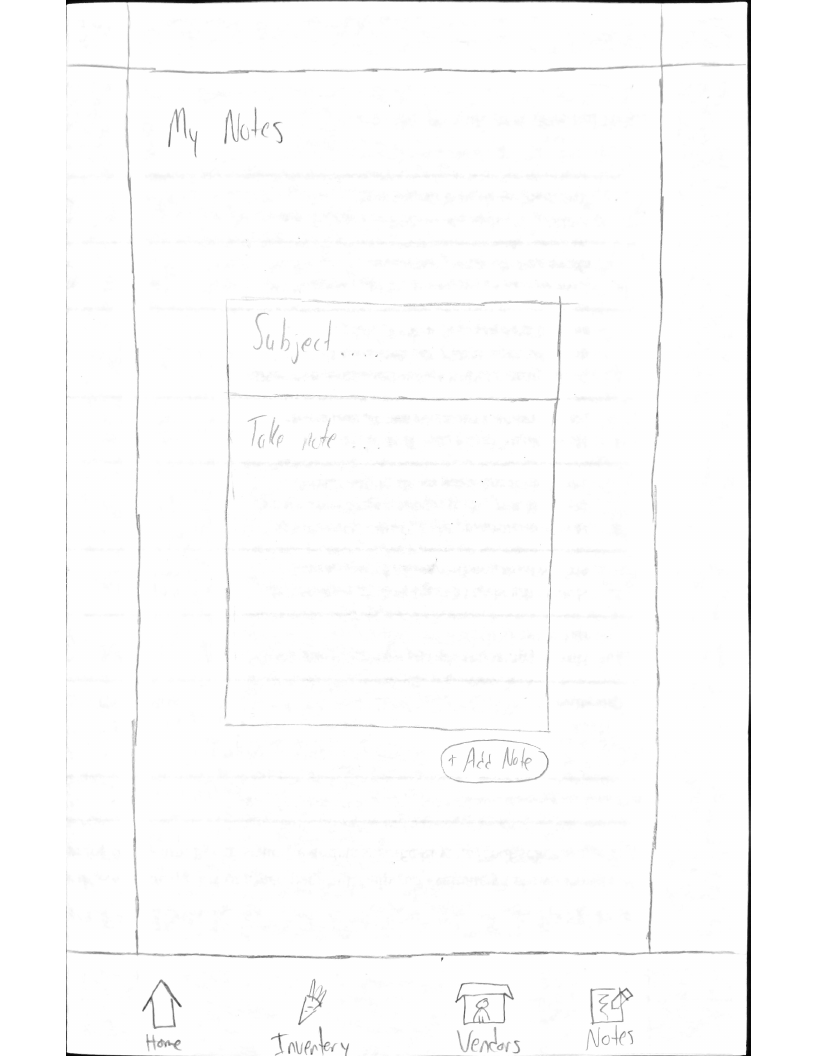 My Notes
Subject....
Take note...
+ Add Note
Home
Inventory
Vendors
Notes